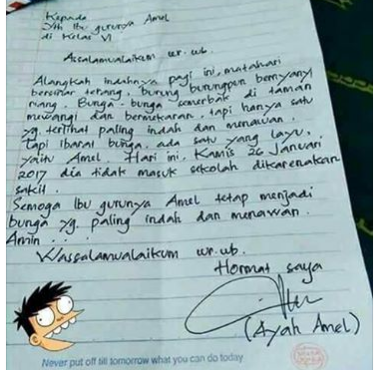 Kepada
Yth Ibu gurunya Amel
di Kelas VI
Assalamualaikum wr. wb.
Alangkah indahnya pagi ini, matahari
bersinar terang, burung burungpun bernyanyi
riang. Bunga-bunga semerbak di taman
mewangi dan bermekaran, tapi hanya satu
yg. terlihat paling indah dan menawan.
Tapi ibarat bunga, ada satu yang layu,
yaitu Amel. Hari ini, Kamis 26 Januari
2017 dia tidak masuk sekolah dikarenakan
sakit.
Semoga Ibu gurunya Amel tetap menjadi
bunga yg. paling indah dan menawan.
Amin . . .
Wassalamualaikum wr. wb.
Hormat saya
(Ayah Amel)
Never put off till tomorrow what you can do today